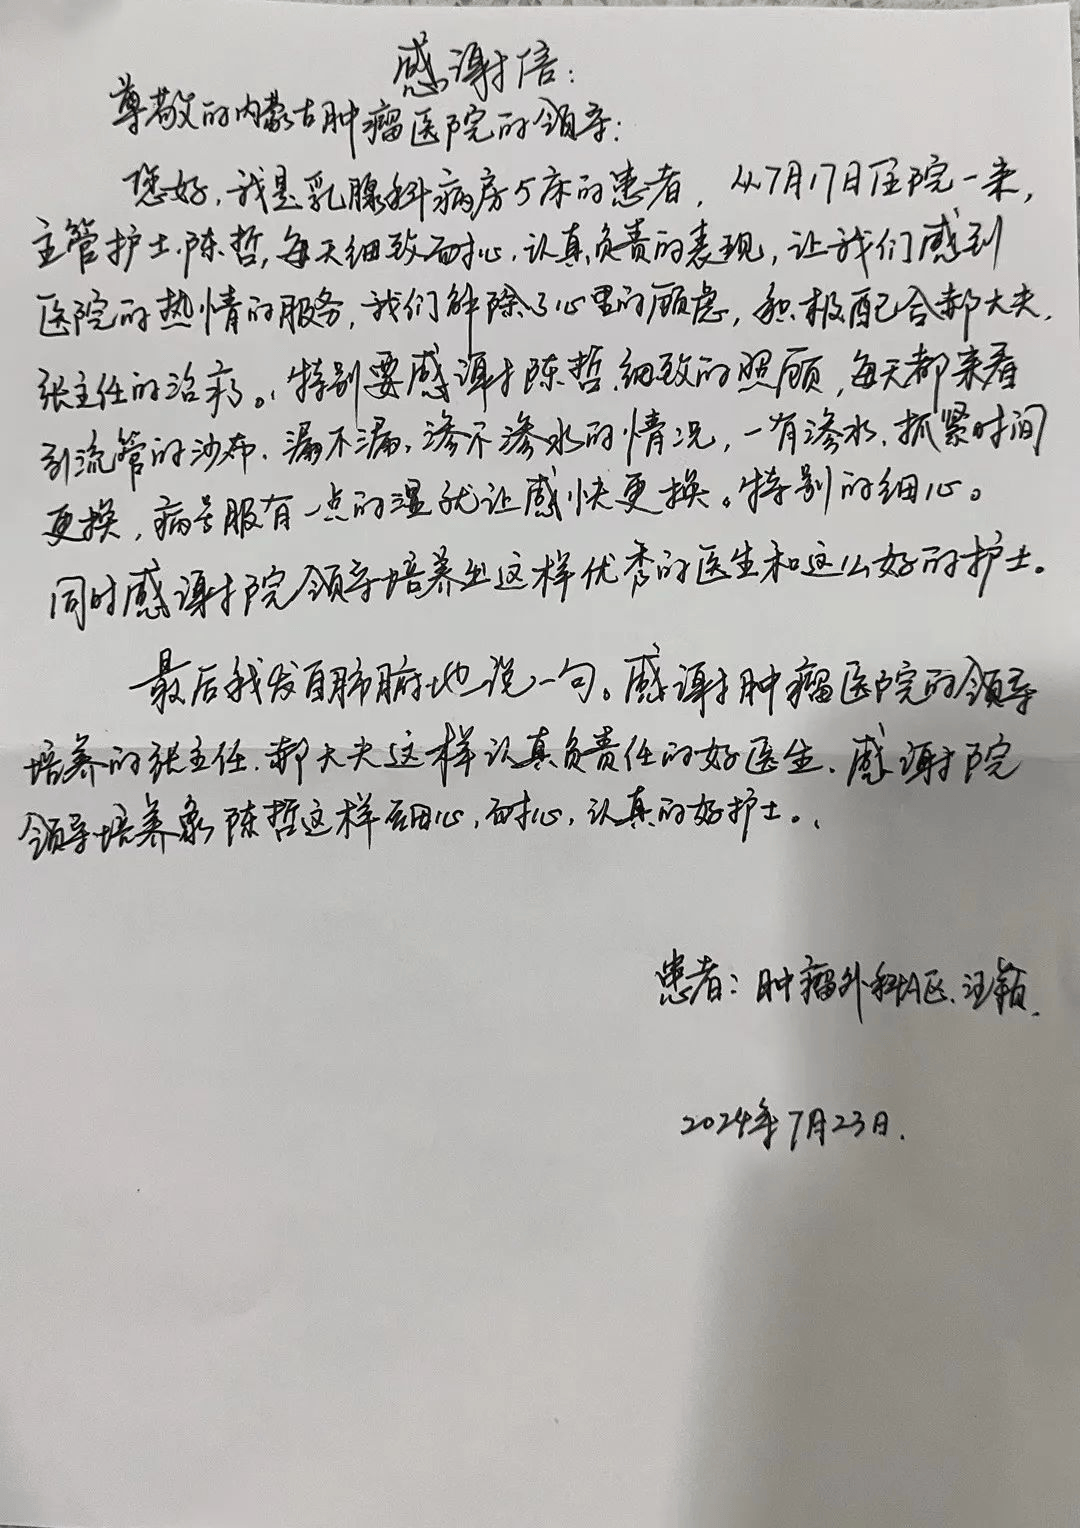 感谢信：
尊敬的内蒙古肿瘤医院的领导：
您好，我是乳腺科病房5床的患者，从7月17日住院一来，
主管护士陈哲，每天细致耐心，认真负责的表现，让我们感到
医院的热情的服务，我们解除了心里的顾虑，积极配合郝大夫，
张主任的治疗。特别要感谢陈哲细致的照顾，每天都来看
引流管的沙布，漏不漏，渗不渗水的情况，一有渗水，抓紧时间
更换，病号服有一点的湿就让感快更换。特别的细心。
同时感谢院领导培养出这样优秀的医生和这么好的护士。
最后我发自肺腑地说一句。感谢肿瘤医院的领导
培养的张主任，郝大夫这样认真负责任的好医生，感谢院
领导培养象陈哲这样细心，耐心，认真的好护士。
患者：肿瘤外科A区，汪颖
2024年7月23日.